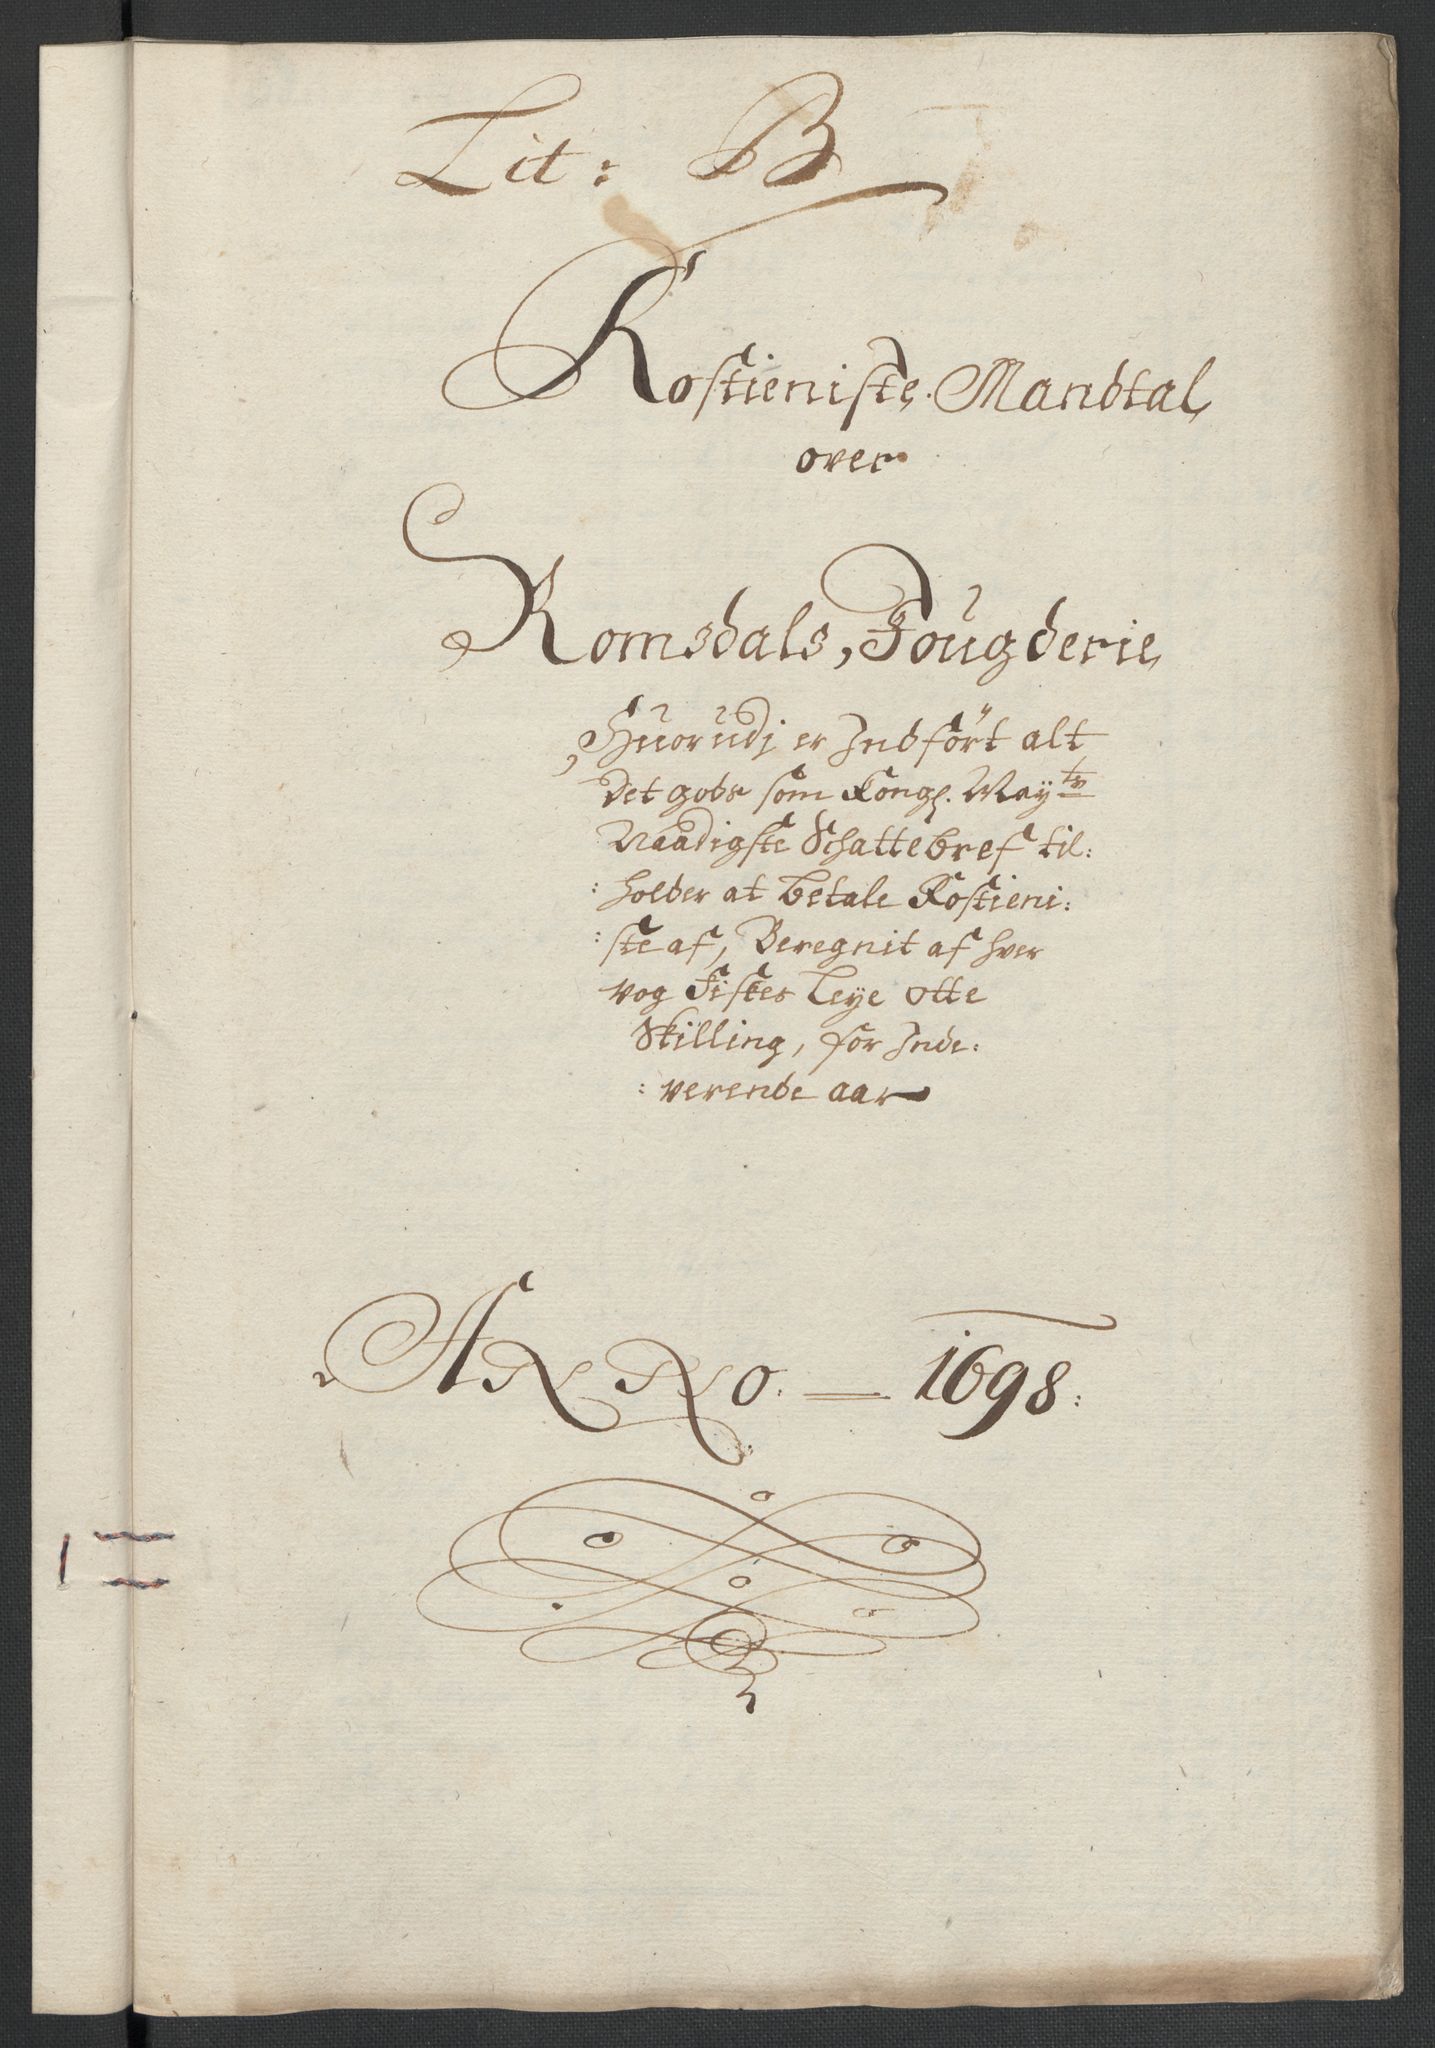 Lit: B
Rostieniste Mandtal
over
Romsdals, Fougderie
Huorudj er Indført alt
Det gods som Kongl. Mayts
Naadigste Schattebref til:
:holder at betale Rostieni:
:ste af, Beregnit af hver
vog Fiskes Leye otte
Skilling, for Inde:
:verende aar
ANNO. — 1698: